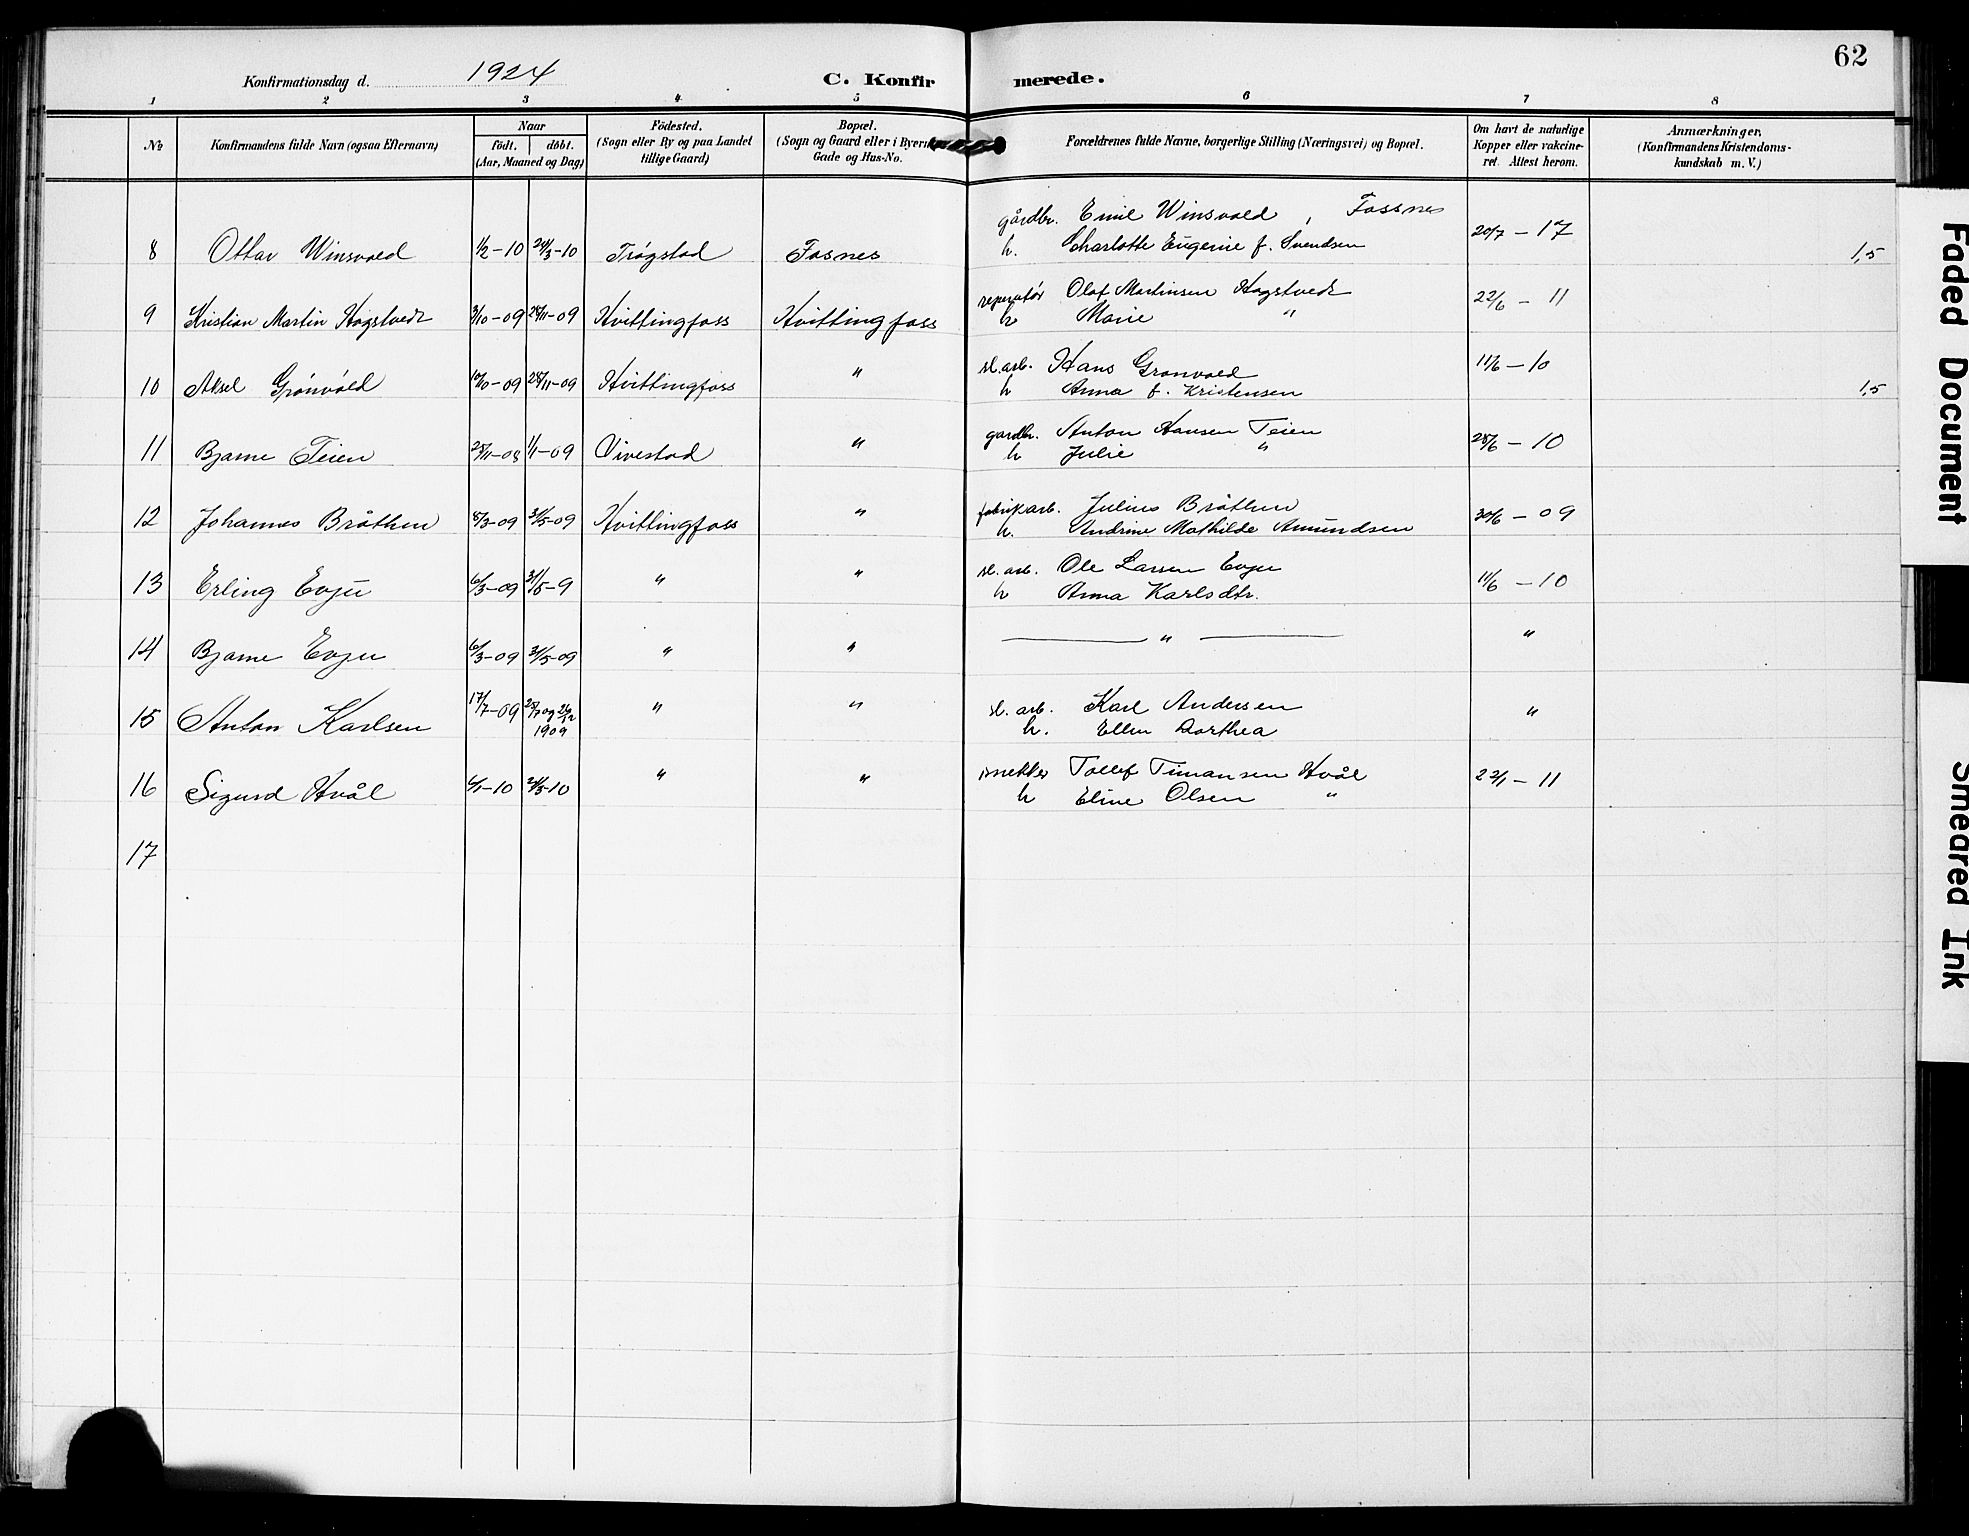 62
Konfirmationsdag d. 1924 C. Konfir merede.
1 2 3 4 5 6 7 8
No Konfirmandens fulde Navn (ogsaa Efternavn) Naar födt. döbt. (Aar, Maaned og Dag) Födested. (Sogn eller By og paa Landet tillige Gaard) Bopæl. (Sogn og Gaard eller i Byerne Gade og Hus-No. Forældrenes fulde Navne, borgerlige Stilling (Næringsvei) og Bopæl. Om havt de naturlige Kopper eller vakcineret. Attest herom. Anmærkninger. (Konfirmandens Kristendomskundskab m. V.)
gårdbr. Emil Winsvold, Fossnes
8 Ottar Winsvold 1/2-10 24/3-10 Trøgstad Fosnes h. Charlotte Eugenie f. Svendsen 20/7-17 1,5
reperatør Olaf Martinsen Hogstvedt
9 Kristian Martin Hogstvedt 3/10-09 28/11-09 Hvittingfoss Hvittingfoss h Marie " 22/6-11
sl. arb. Hans Grønvold
10 Aksel Grønvold 10/10-09 28/11-09 Hvittingfoss " h Anna f. Kristensen 11/6-10 1,5
gardbr. Anton Hansen Teien
11 Bjarne Teien 25/11-08 1/1-09 Vivestad " h Julie " 28/6-10
fabrikarb. Julius Bråthen
12 Johannes Bråthen 8/3-09 31/5-09 Hvittingfoss " h. Andrine Mathilde Amundsen 30/6-09
sl. arb. Ole Larsen Evju
13 Erling Evju 6/3-09 31/5-9 " " h Anna Karlsdtr. 11/6-10
14 Bjarne Evju 6/3-09 31/5-09 " " — " — "
sl. arb. Karl Andersen
15 Anton Karlsen 17/7-09 25/7 og 26/12 1909 " " h. Ellen Dorthea "
snekker Tollef Timansen Hvål
16 Sigurd Hvål 6/1-10 24/3-10 " " h Eline Olsen " 22/1-11
17
Faded Document
Smeared Ink